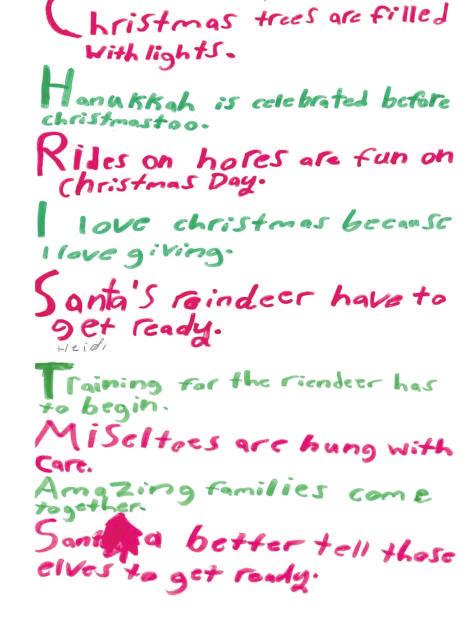 Christmas trees are filled
with lights.
Hanukkah is celebrated before
christmas too.
Rides on hores are fun on
Christmas Day.
I love christmas because
I love giving.
Santa's reindeer have to
get ready.
Heidi
Training for the riendeer has
to begin.
Miseltoes are hung with
care.
Amazing families come
together.
Santa a better tell those
elves to get ready.